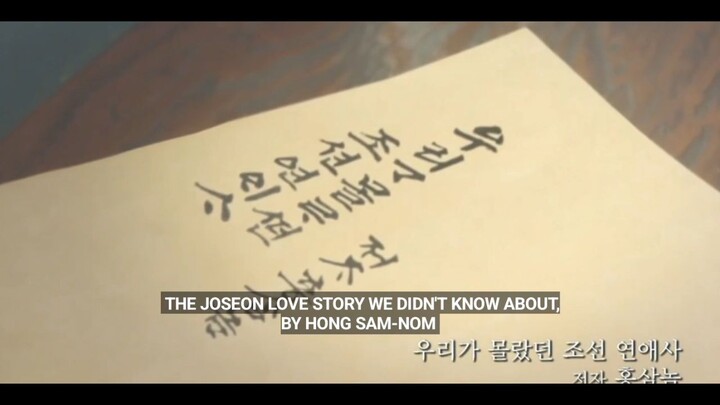 우리가
조선
저자
THE JOSEON LOVE STORY WE DIDN'T KNOW ABOUT,
BY HONG SAM-NOM
우리가 몰랐던 조선 연애사
저자 홍삼놈